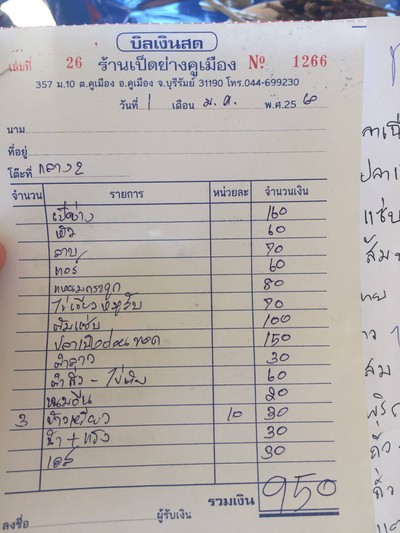 บิลเงินสด
เล่มที่ 26 ร้านเป็ดย่างคูเมือง Nº 1266
357 ม.10 ต.คูเมือง อ.คูเมือง จ.บุรีรัมย์ 31190 โทร.044-699230
วันที่ 1 เดือน ม.ค. พ.ศ.25 60
นาม
ที่อยู่
โต๊ะที่ กลาง 2
จำนวน รายการ หน่วยละ จำนวนเงิน
เป็ดย่าง 160
60
ลาบ 70
60
แหนมกระดูก 80
ไข่เจียวหมูสับ 70
ต้มแซ่บ 100
ปลาเนื้ออ่อนทอด 150
ตำลาว 30
ตำถั่ว - ไข่ต้ม 60
ขนมจีน 20
3 ข้าวเหนียว 10 30
น้ำ + แข็ง 30
30
รวมเงิน 950
ลงชื่อ ผู้รับเงิน